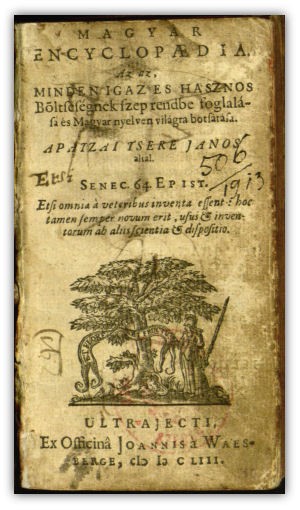 MAGYAR
ENCYCLOPÆDIA.
Az az,
MINDEN IGAZ ES HASZNOS
Böltseségnek szep rendbe foglalá-
sa és Magyar nyelven világra botsátása.
APATZAI TSERE JANOS
által.
506
1913
Etsi
SENEC. 64. EPIST.
Etsi omnia à veteribus inventa essent: hoc
tamen semper novum erit, usus & inven-
torum ab aliis scientia & dispositio.
ULTRAJECTI,
Ex Officinâ JOANNIS à WAES-
BERGE, cIↄ Iↄ C LIII.